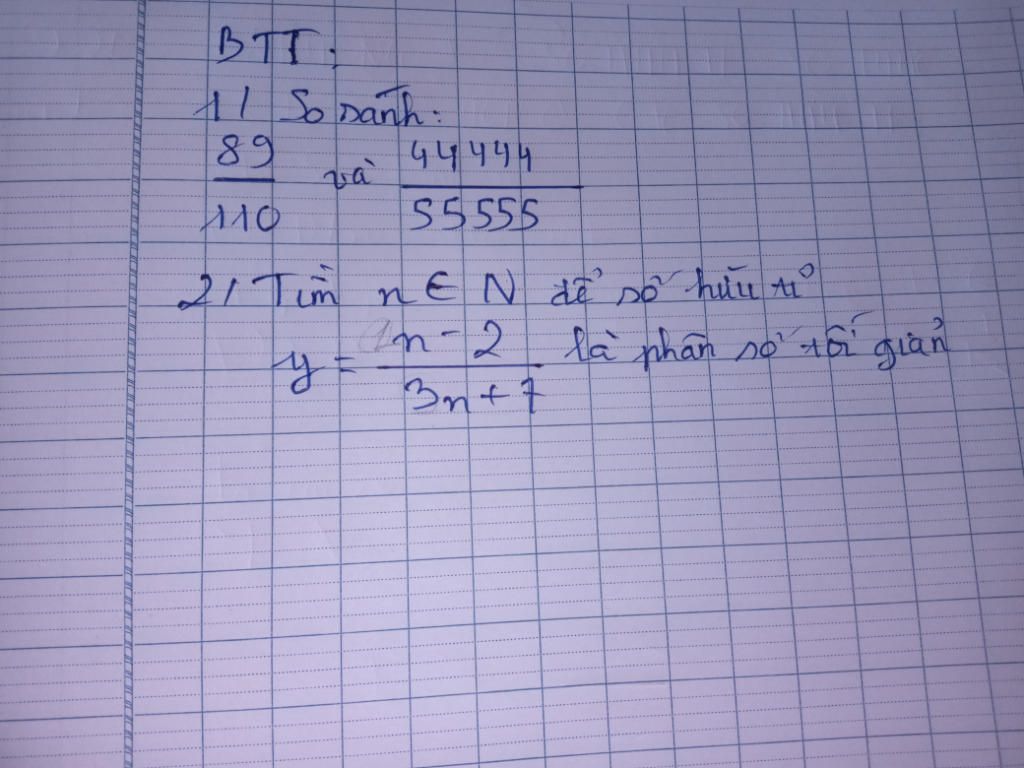 BTT:
1/ So sánh:
89/110 và 44444/55555
2/ Tìm n ∈ N để số hữu tỉ
y = n - 2/3n + 7 là phân số tối giản